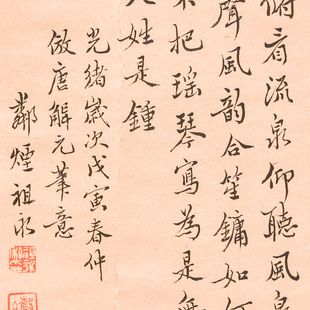 俯看流泉仰聽風泉
聲風韵合笙鏞如何
把瑶琴寫為是無
姓是鍾
光緒歲次戊寅春仲
倣唐解元筆意
鄰煙祖永